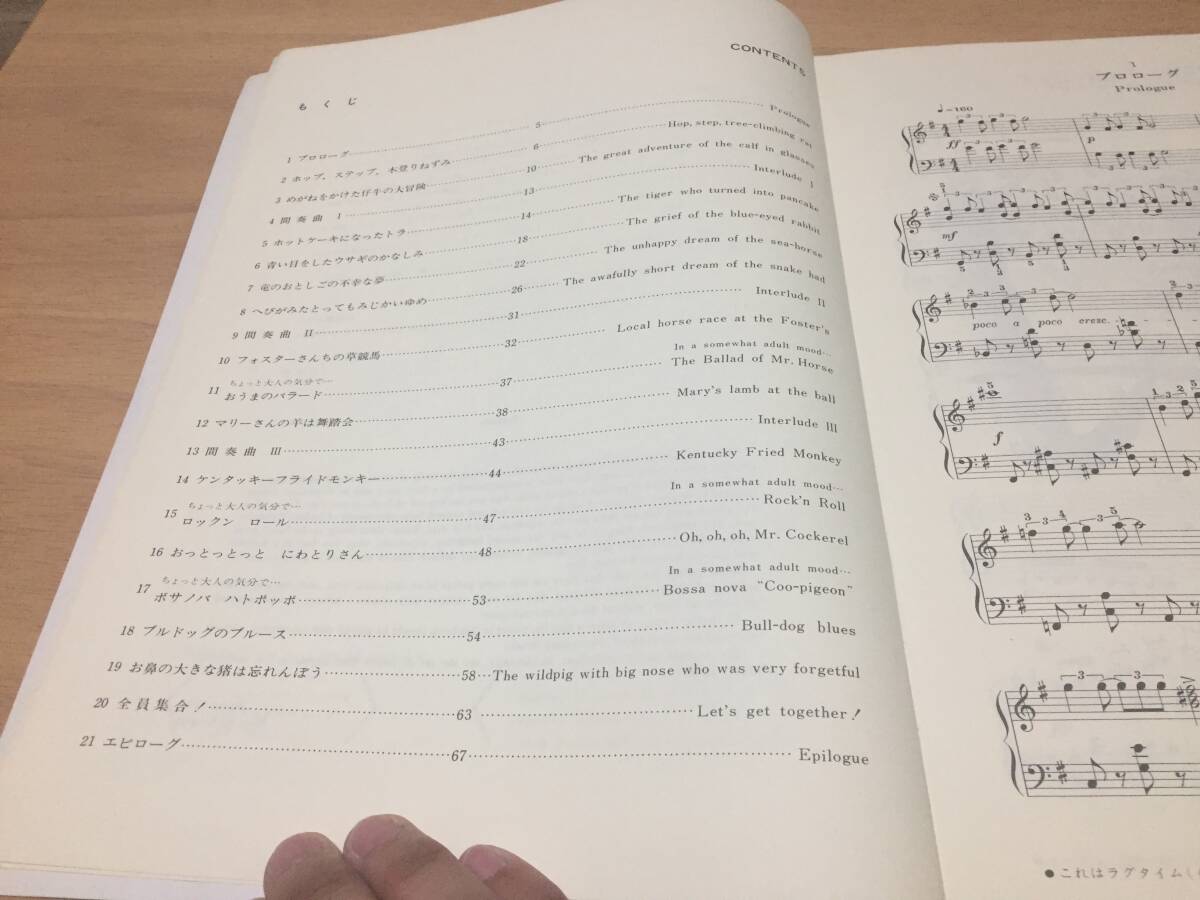 CONTENTS
もくじ
1 プロローグ 5 Prologue
2 ホップ, ステップ, 木登りねずみ 6 Hop, step, tree-climbing rat
3 めがねをかけた仔牛の大冒険 10 The great adventure of the calf in glasses
4 間奏曲 I 13 Interlude I
5 ホットケーキになったトラ 14 The tiger who turned into pancake
6 青い目をしたウサギのかなしみ 18 The grief of the blue-eyed rabbit
7 竜のおとしごの不幸な夢 22 The unhappy dream of the sea-horse
8 へびがみたとってもみじかいゆめ 26 The awafully short dream of the snake had
9 間奏曲 II 31 Interlude II
10 フォスターさんちの草競馬 32 Local horse race at the Foster's
ちょっと大人の気分で… In a somewhat adult mood…
11 おうまのバラード 37 The Ballad of Mr. Horse
12 マリーさんの羊は舞踏会 38 Mary's lamb at the ball
13 間奏曲 III 43 Interlude III
14 ケンタッキーフライドモンキー 44 Kentucky Fried Monkey
ちょっと大人の気分で… In a somewhat adult mood…
15 ロックン ロール 47 Rock'n Roll
16 おっとっとっと にわとりさん 48 Oh, oh, oh, Mr. Cockerel
ちょっと大人の気分で… In a somewhat adult mood…
17 ボサノバ ハトポッポ 53 Bossa nova "Coo-pigeon"
18 ブルドッグのブルース 54 Bull-dog blues
19 お鼻の大きな猪は忘れんぼう 58 The wildpig with big nose who was very forgetful
20 全員集合! 63 Let's get together!
21 エピローグ 67 Epilogue
1
プロローグ
Prologue
♩=160
ff
p
mf
poco a poco cresc.
f
●これはラグタイム(